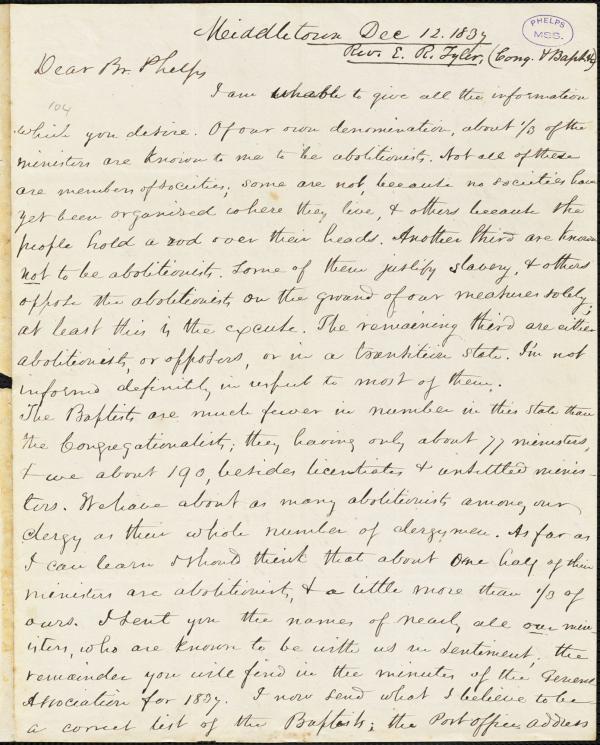 Middletown Dec 12. 1837
PHELPS
MSS.
Rev. E. R. Tyler, (Cong. & Baptists)
Dear Br. Phelps
104
I am unable to give all the information
which you desire. Of our own denomination, about 1/3 of the
ministers are known to me to be abolitionists. Not all of these
are members of societies; some are not, because no societies have
yet been organized where they live, & others because the
people hold a rod over their heads. Another third are known
not to be abolitionists. Some of them justify slavery, & others
oppose the abolitionists on the ground of our measures solely;
at least this is the excuse. The remaining third are either
abolitionists, or opposers, or in a transition state. I'm not
informed definitely in respect to most of them.
The Baptists are much fewer in number in this State than
the Congregationalists; they having only about 77 ministers,
& we about 190, besides licentiates & unsettled minis-
ters. We have about as many abolitionists among our
clergy as their whole number of clergymen. As far as
I can learn I should think that about one half of their
ministers are abolitionists, & a little more than 1/3 of
ours. I sent you the names of nearly all our min-
isters, who are known to be with us in sentiment; the
remainder you will find in the minutes of the General
Association for 1837. I now send what I believe to be
a correct list of the Baptists; the Post Office address